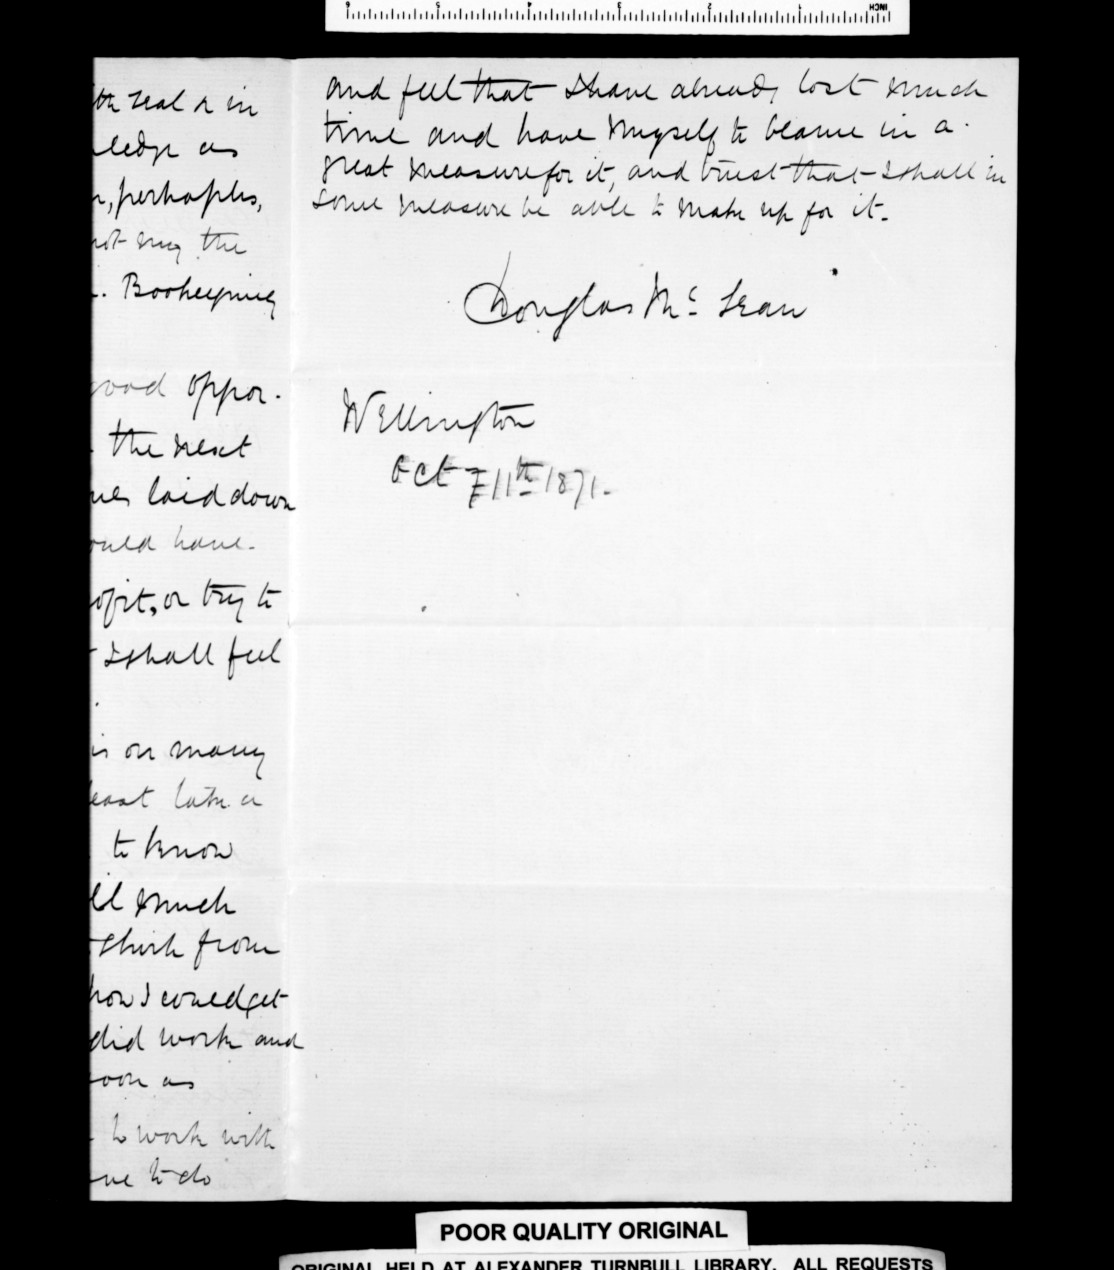 and feel that I have already lost much
time and have myself to blame in a
great measure for it, and trust that I shall in
some measure be able to make up for it.
Douglas McLean
Wellington
Oct 11th 1871.
zeal & in
ledge as
perhaphs,
not my the
Bookeeping
good oppor-
the next
laid down
ould have
ofit, or try to
I shall feel
is on many
least take a
to know
ll much
shirk from
how I could get
did work and
soon as
to work with
ve to do
6 5 4 3 2 1 INCH
POOR QUALITY ORIGINAL
ORIGINAL HELD AT ALEXANDER TURNBULL LIBRARY. ALL REQUESTS